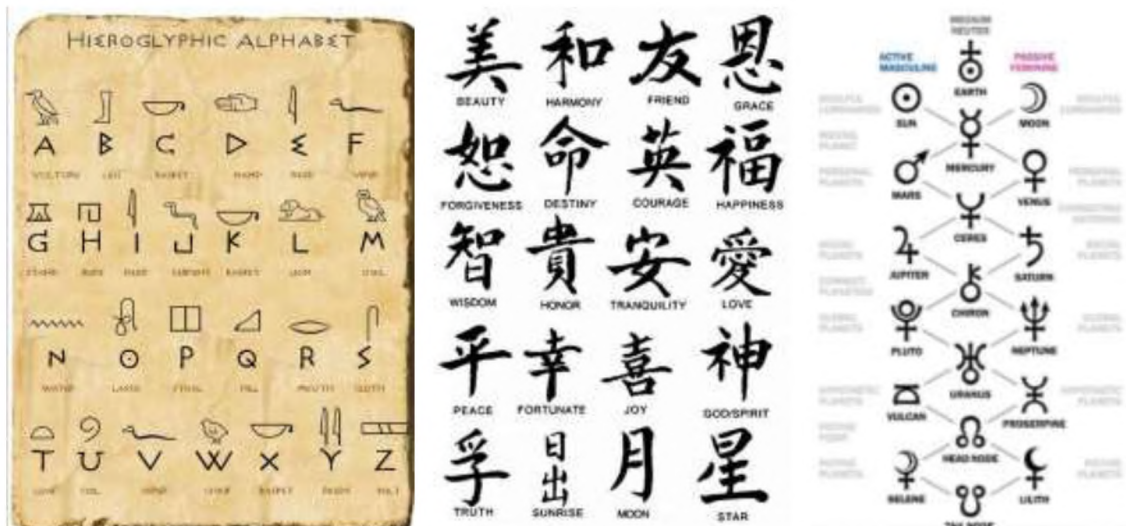 HIEROGLYPHIC ALPHABET
A B C D E F
VULTURE LEG BASKET HAND REED VIPER
G H I J K L M
STAND REED SERPENT BASKET LION OWL
N O P Q R S
WATER LASSO STOOL HILL MOUTH CLOTH
T U V W X Y Z
LOAF VIPER CHICK BASKET REEDS BOLT
美 和 友 恩
BEAUTY HARMONY FRIEND GRACE
恕 命 英 福
FORGIVENESS DESTINY COURAGE HAPPINESS
智 貴 安 愛
WISDOM HONOR TRANQUILITY LOVE
平 幸 喜 神
PEACE FORTUNATE JOY GOD/SPIRIT
孚 日出 月 星
TRUTH SUNRISE MOON STAR
MEDIUM
NEUTER
ACTIVE
MASCULINE
PASSIVE
FEMININE
EARTH
SUN MOON
MERCURY
MARS VENUS
CERES
JUPITER SATURN
CHIRON
PLUTO NEPTUNE
URANUS
VULCAN PROSERPINE
HEAD NODE
SELENE LILITH